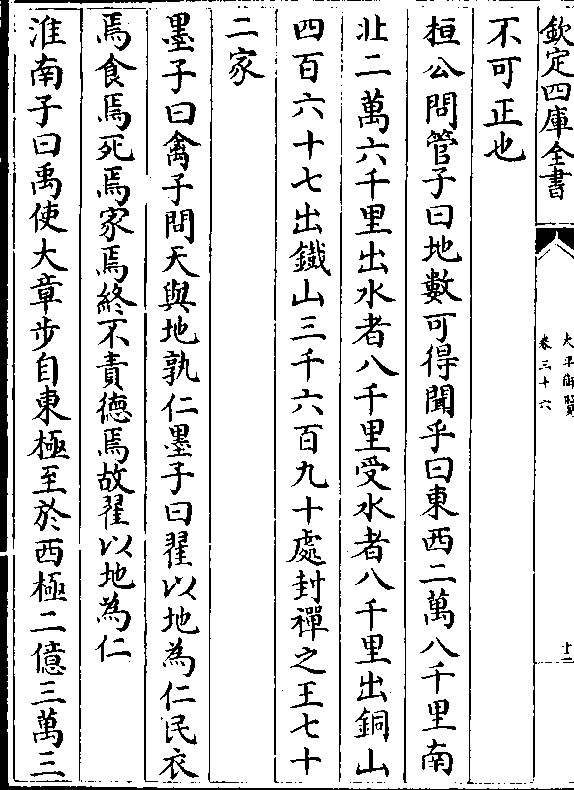 欽定四庫全書
太平御覽
卷三十六
十二
不可正也
桓公問管子曰地數可得聞乎曰東西二萬八千里南
北二萬六千里出水者八千里受水者八千里出銅山
四百六十七出鐵山三千六百九十處封禪之王七十
二家
墨子曰禽子問天與地孰仁墨子曰翟以地為仁民衣
焉食焉死焉家焉終不責德焉故翟以地為仁
淮南子曰禹使大章步自東極至於西極二億三萬三